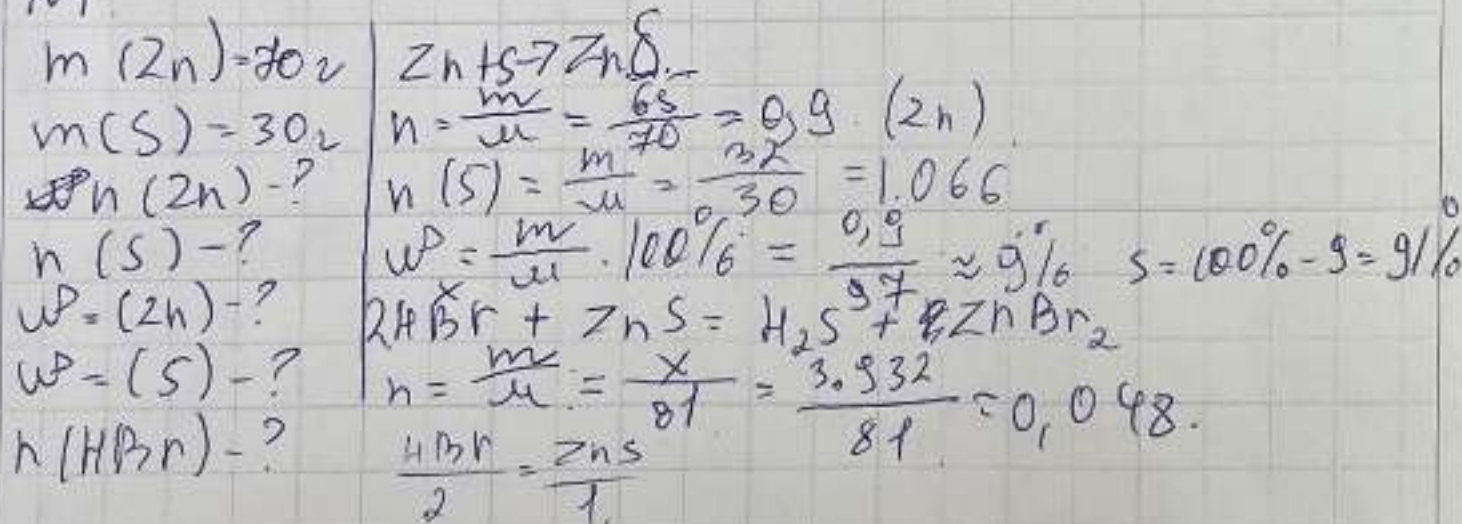 m (Zn) = 70г
m(S) = 30г
n (Zn) - ?
n (S) - ?
ω = (Zn) - ?
ω = (S) - ?
n (HBr) - ?
Zn + S → ZnS
n = m/M = 65/70 = 0,9 (Zn)
n (S) = m/M = 32/30 = 1.066
ω = m/M · 100% = 0,9/97 ≈ 9% S = 100% - 9 = 91%
x
2HBr + ZnS = H₂S + ZnBr₂
n = m/M = x/81 = 3.932/81 = 0,048.
HBr/2 = ZnS/1